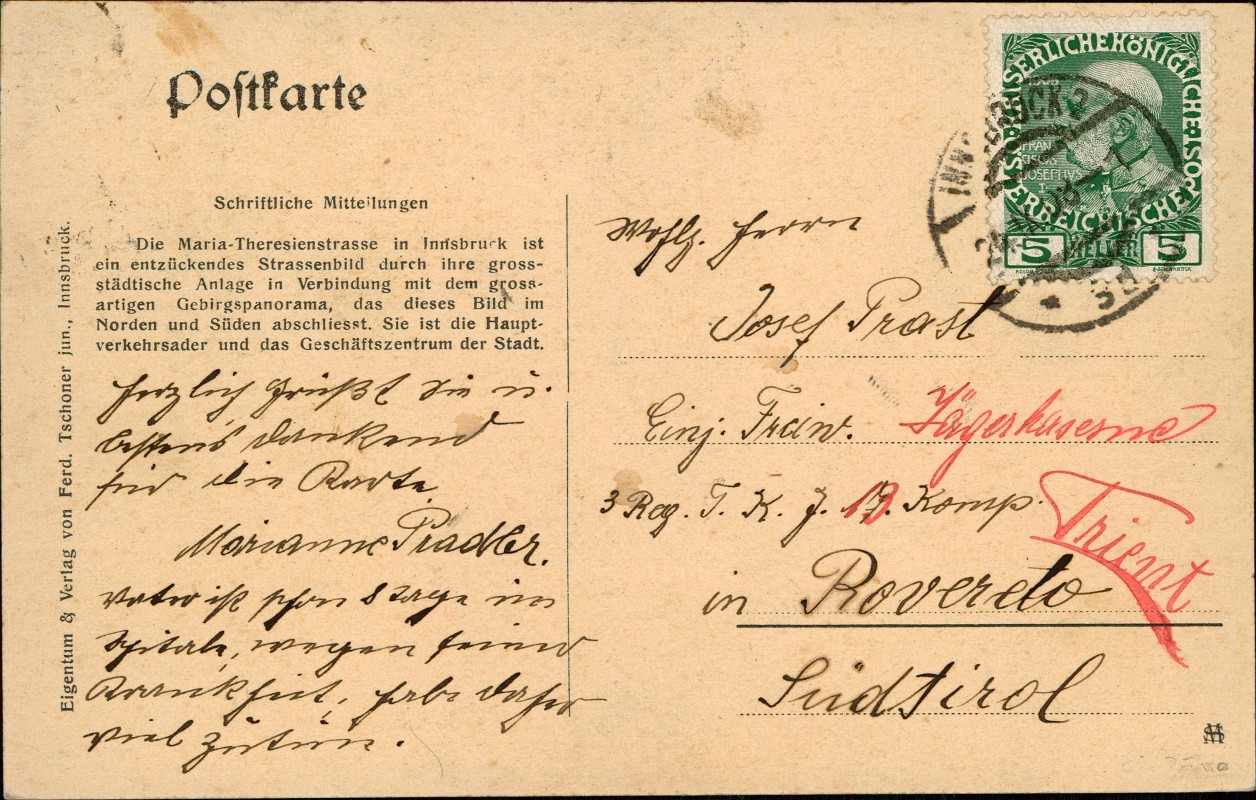 Postkarte
Schriftliche Mitteilungen
Die Maria-Theresienstrasse in Innsbruck ist
ein entzückendes Strassenbild durch ihre gross-
städtische Anlage in Verbindung mit dem gross-
artigen Gebirgspanorama, das dieses Bild im
Norden und Süden abschliesst. Sie ist die Haupt-
verkehrsader und das Geschäftszentrum der Stadt.
Herzlich grüßt Sie u.
bestens dankend
für die Karte
Marianne Pradler.
Vater ist schon 8 Tage im
Spitale, wegen seiner
Krankheit, habe daher
viel zutun.
Eigentum & Verlag von Ferd. Tschoner jun., Innsbruck.
KAISERLICHE KÖNIGLICHE POST
ÖSTERREICHISCHE
FRAN
JOSEPHVS
I
5 HELLER 5
INNSBRUCK 2
* 3D
Wohlg. Herrn
Josef Prast
Einj. Freiw. Jägerkaserne
3 Reg. T. K. J. 13. Komp.
Trient
in Rovereto
Südtirol